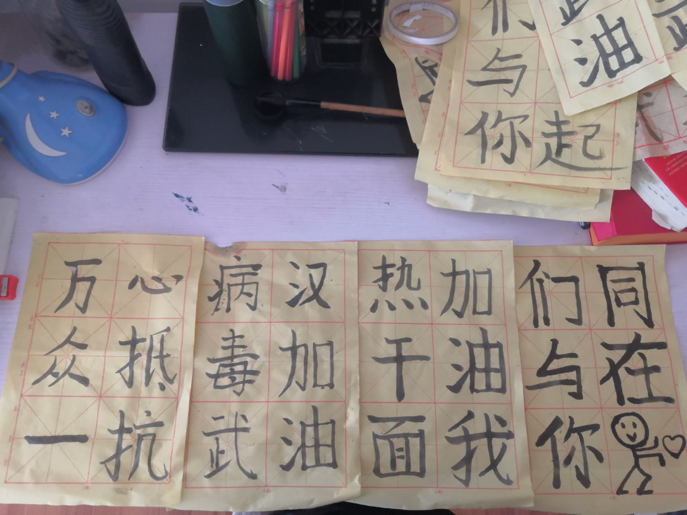 们与你
起
油
万众一
心抵抗
病毒武
汉加油
热干面
加油我
们与你
同在